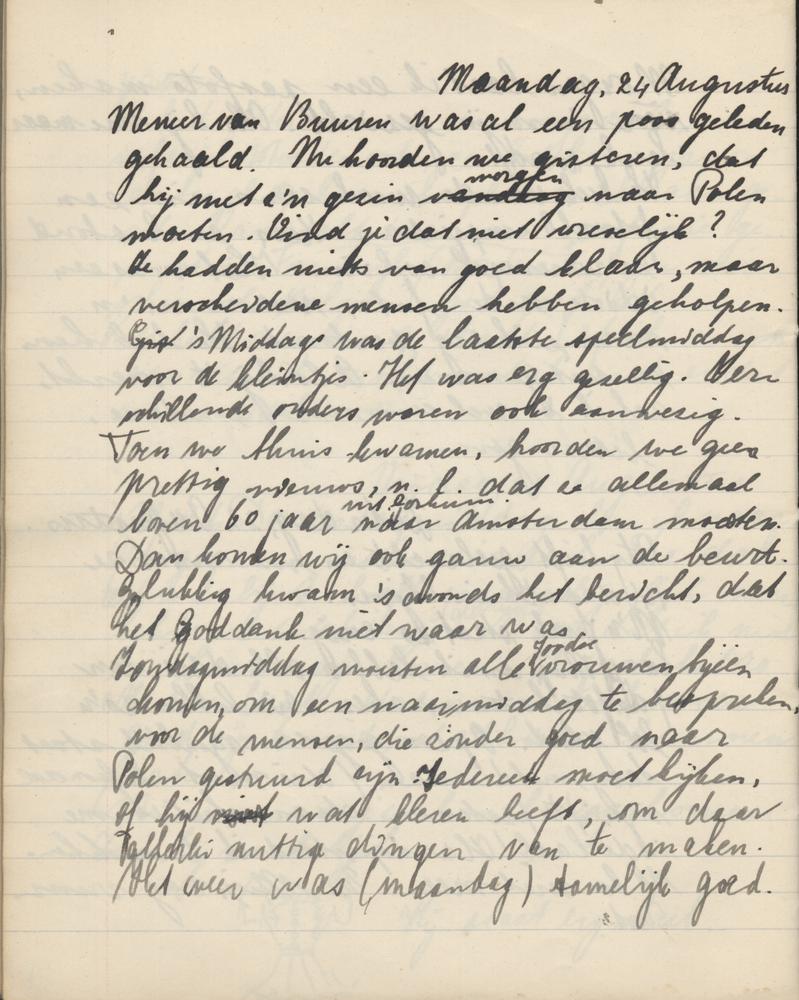 Maandag, 24 Augustus
Meneer van Buuren was al een poos geleden
gehaald. Nu hoorden we gisteren, dat
morgen
hij met z'n gezin vandaag naar Polen
moeten. Vind je dat niet vreselijk?
Ze hadden niets van goed klaar, maar
verscheidene mensen hebben geholpen.
Gist 's Middags was de laatste speelmiddag
voor de kleintjes. Het was erg gezellig. Ver-
schillende ouders waren ook aanwezig.
Toen we thuis kwamen, hoorden we geen
prettig nieuws, n.l. dat ze allemaal
uit Gorkum
boven 60 jaar naar Amsterdam moesten.
Dan komen wij ook gauw aan de beurt.
Gelukkig kwam 's avonds het bericht, dat
het Goddank niet waar was.
Joodse
Zondagmiddag moesten alle vrouwen bijeen
komen, om een naaimiddag te bespreken,
voor de mensen, die zonder goed naar
Polen gestuurd zijn. Iedereen moet kijken,
of hij niet wat kleren heeft, om daar
allerlei nuttige dingen van te maken.
Het weer was (maandag) tamelijk goed.